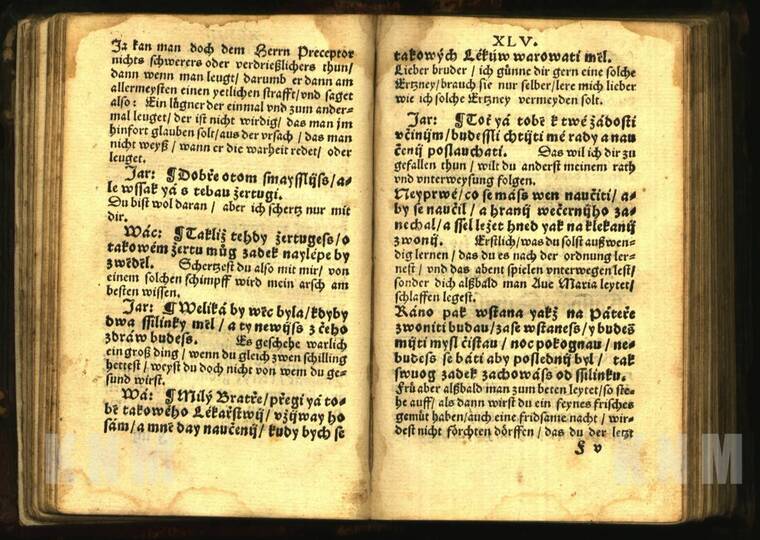 Ja kan man doch dem Herrn Preceptor
nichts schwerers oder verdrießlichers thun/
dann wenn man leugt/ darumb er dann am
allermeysten einen yetlichen strafft/ vnd saget
also: Ein lůgner der einmal vnd zum ander-
mal leuget/ der ist nicht wirdig/ das man jm
hinfort glauben solt/ aus der vrsach/ das man
nicht weyß/ wann er die warheit redet/ oder
leuget.
Jar: ¶Dobře otom smayssligss/ a-
le wssak yá s tebau žertugi.
Du bist wol daran/ aber ich schertz nur mit
dir.
Wác: ¶Takliž tehdy žertugess/ o
takowém žertu můg zadek naylépe by
zwěděl. Schertzest du also mit mir/ von
einem solchen schimpff wird mein arsch am
besten wissen.
Jar: ¶Weliká by wěc byla/ kdyby
dwa ssilinky měl/ a ty newijss z čeho
zdráw budess. Es geschehe warlich
ein groß ding/ wenn du gleich zwen schilling
hettest/ weyst du doch nicht von wem du ge-
sund wirst.
Wá: ¶Milý Bratře/ přegi yá to-
bě takowého Lékařstwij/ vžijway ho
sám/ a mně day naučenij/ kudy bych se
XLV.
takowých Lékůw warowati měl.
Lieber bruder/ ich günne dir gern eine solche
Ertzney/ brauch sie nur selber/ lere mich lieber
wie ich solche Ertzney vermeyden solt.
Jar: ¶Toť yá tobě k twé žádosti
včinijm/ budessli chtijti mé rady a nau
čenij poslauchati. Das wil ich dir zu
gefallen thun/ wilt du anderst meinem rath
vnd vnterweysung folgen.
Neyprwé/ co se máss wen naučiti/ a-
by se naučil/ a hranij wečernijho za-
nechal/ a ssel ležet hned yak na klekanij
zwonij. Erstlich/ was du solst außwen-
dig lernen/ das du es nach der ordnung ler-
nest/ vnd das abent spielen vnterwegen lest/
sonder dich alßbald man Aue Maria leytet/
schlaffen legest.
Ráno pak wstana yakž na Páteře
zwoniti budau/ zase wstaness/ y budeš
mijti mysl čistau/ noc pokognau/ ne-
budess se báti aby poslednij byl/ tak
swuog zadek zachowáss od ssilinku.
Frü aber alßbald man zum beten leytet/ so ste-
he auff/ als dann wirst du ein feynes frisches
gemüt haben/ auch eine fridsame nacht/ wir-
dest nicht förchten dörffen/ das du der letzt
F v
KNM
KNM